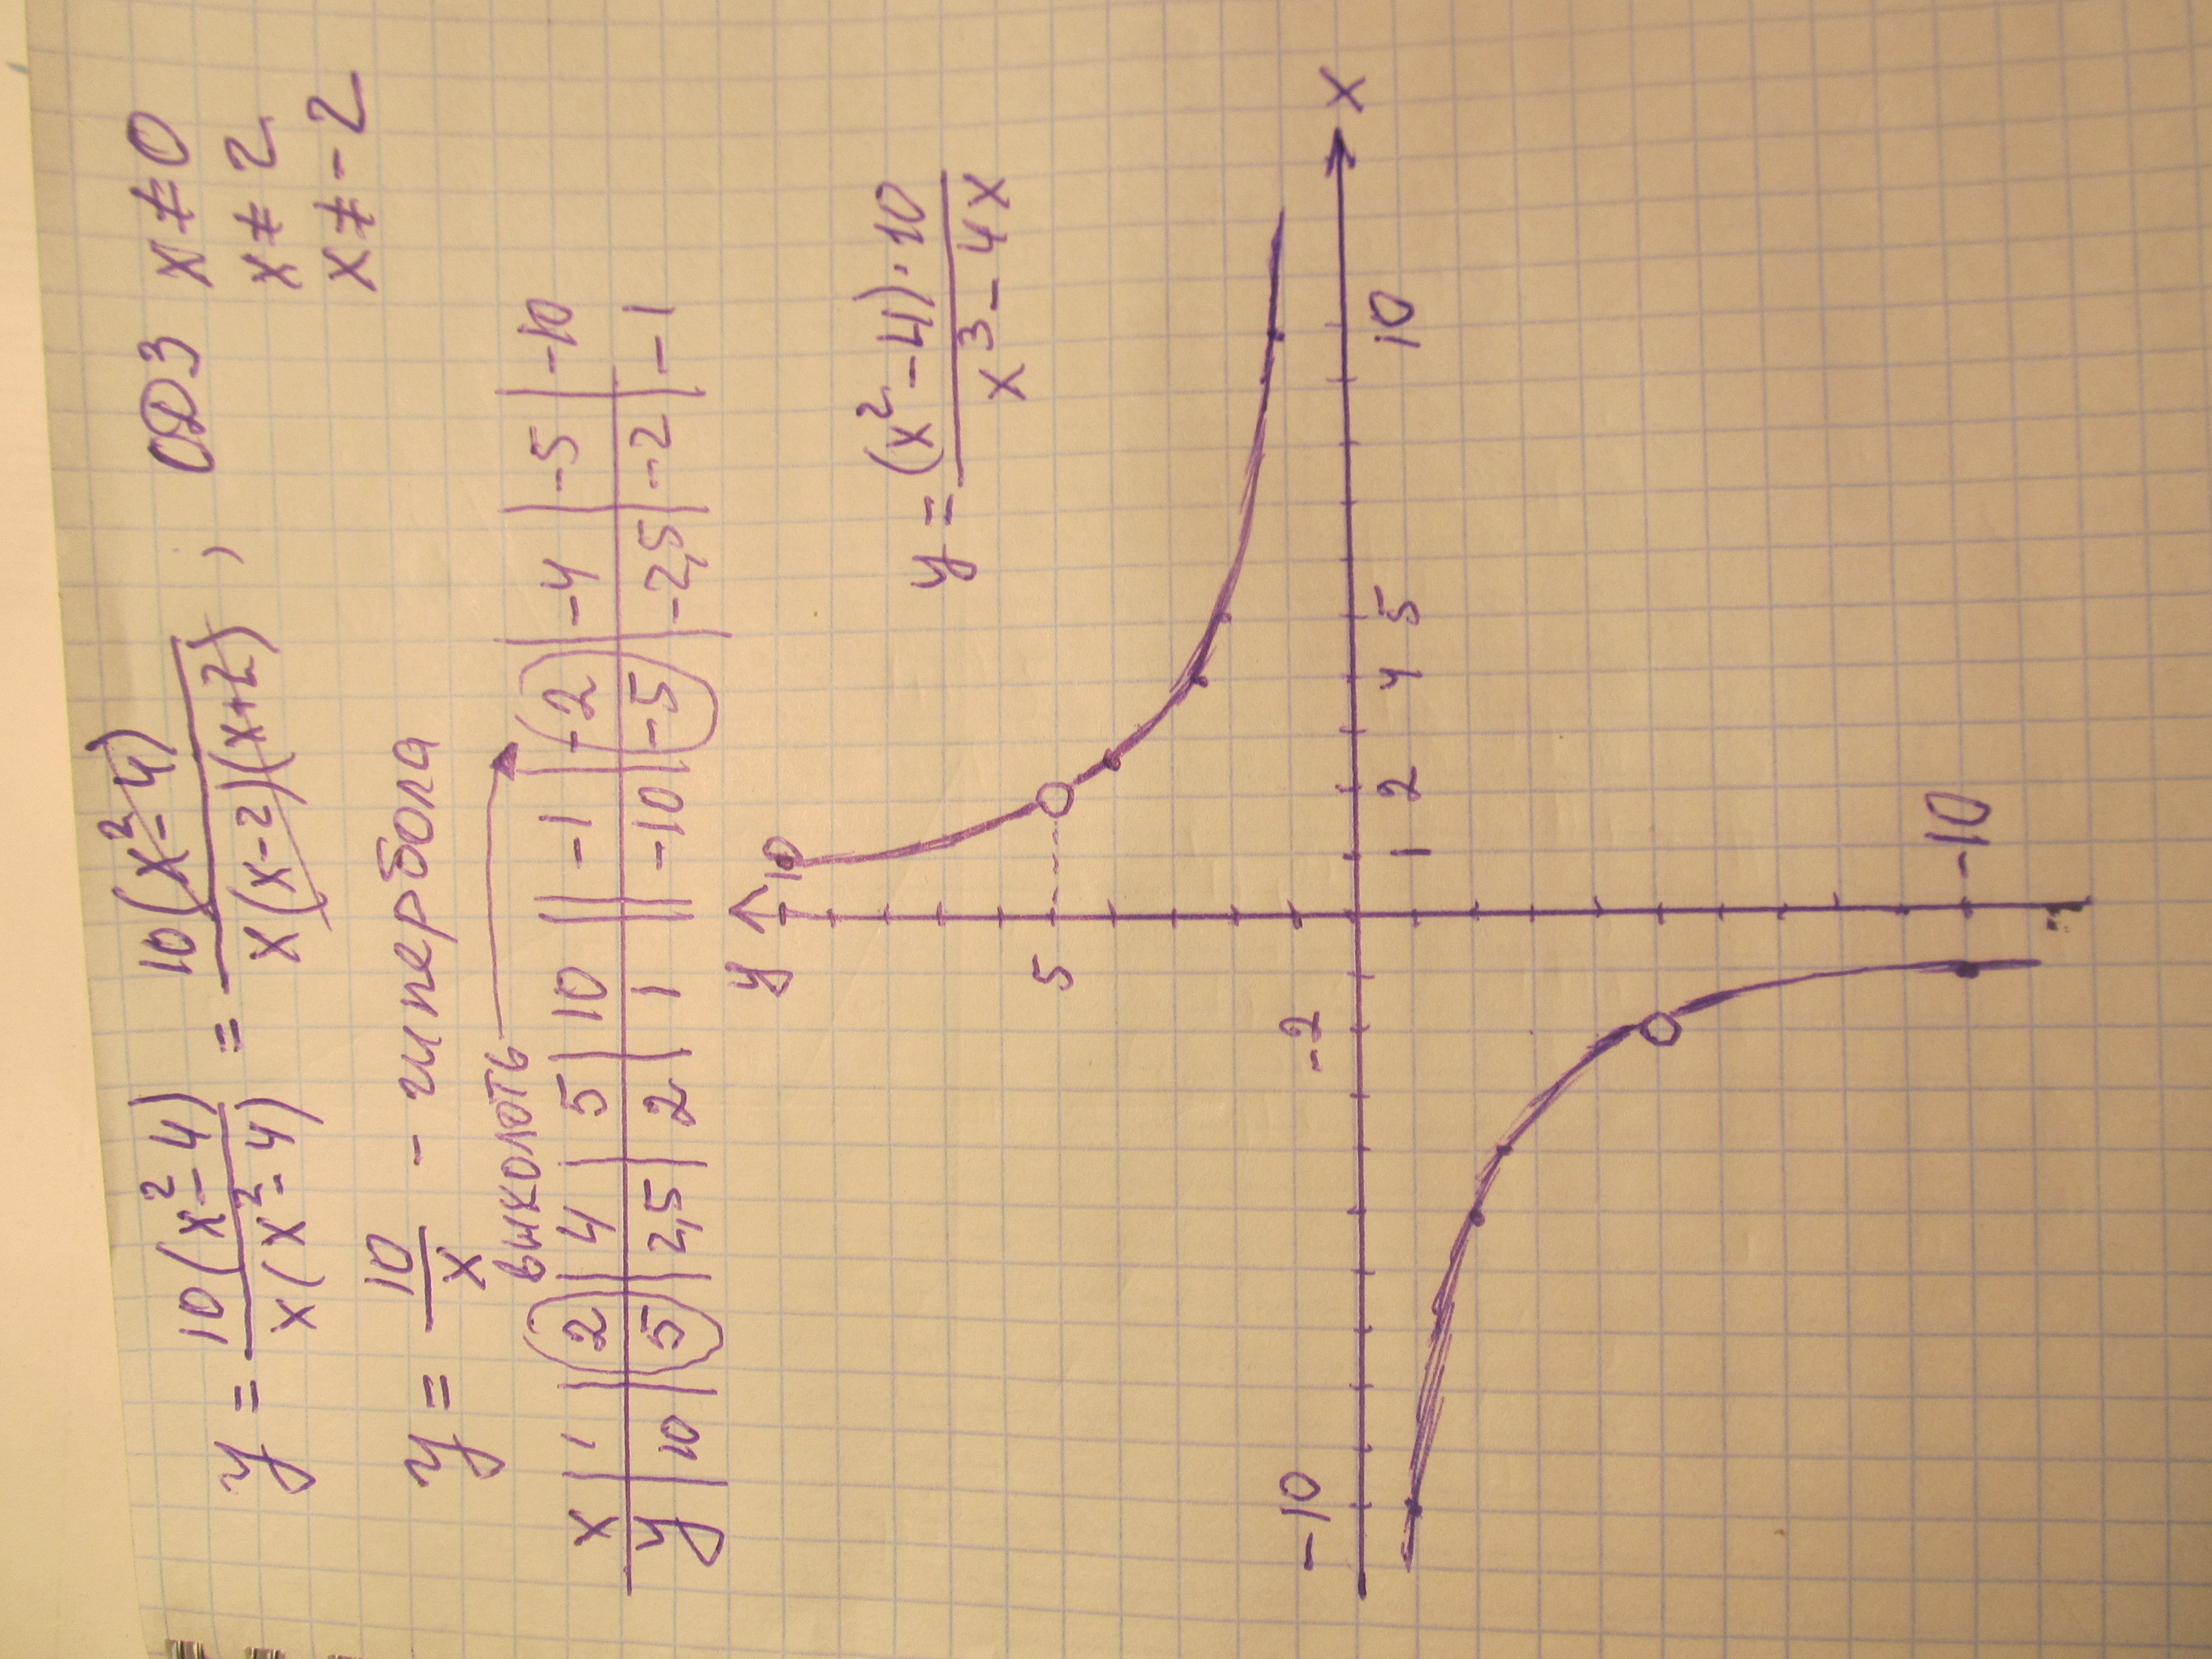 y = 10(x²-4)/x(x²-4) = 10(x²-4)/x(x-2)(x+2) ; ОДЗ x≠0
x≠2
x≠-2
y = 10/x - гипербола
выколоть
x | 1 | 2 | 4 | 5 | 10 || -1 | -2 | -4 | -5 | -10
y | 10 | 5 | 2,5 | 2 | 1 || -10 | -5 | -2,5 | -2 | -1
y
10
y = (x²-4)·10/x³-4x
5
-10 -2 x
1 2 4 5 10
-10